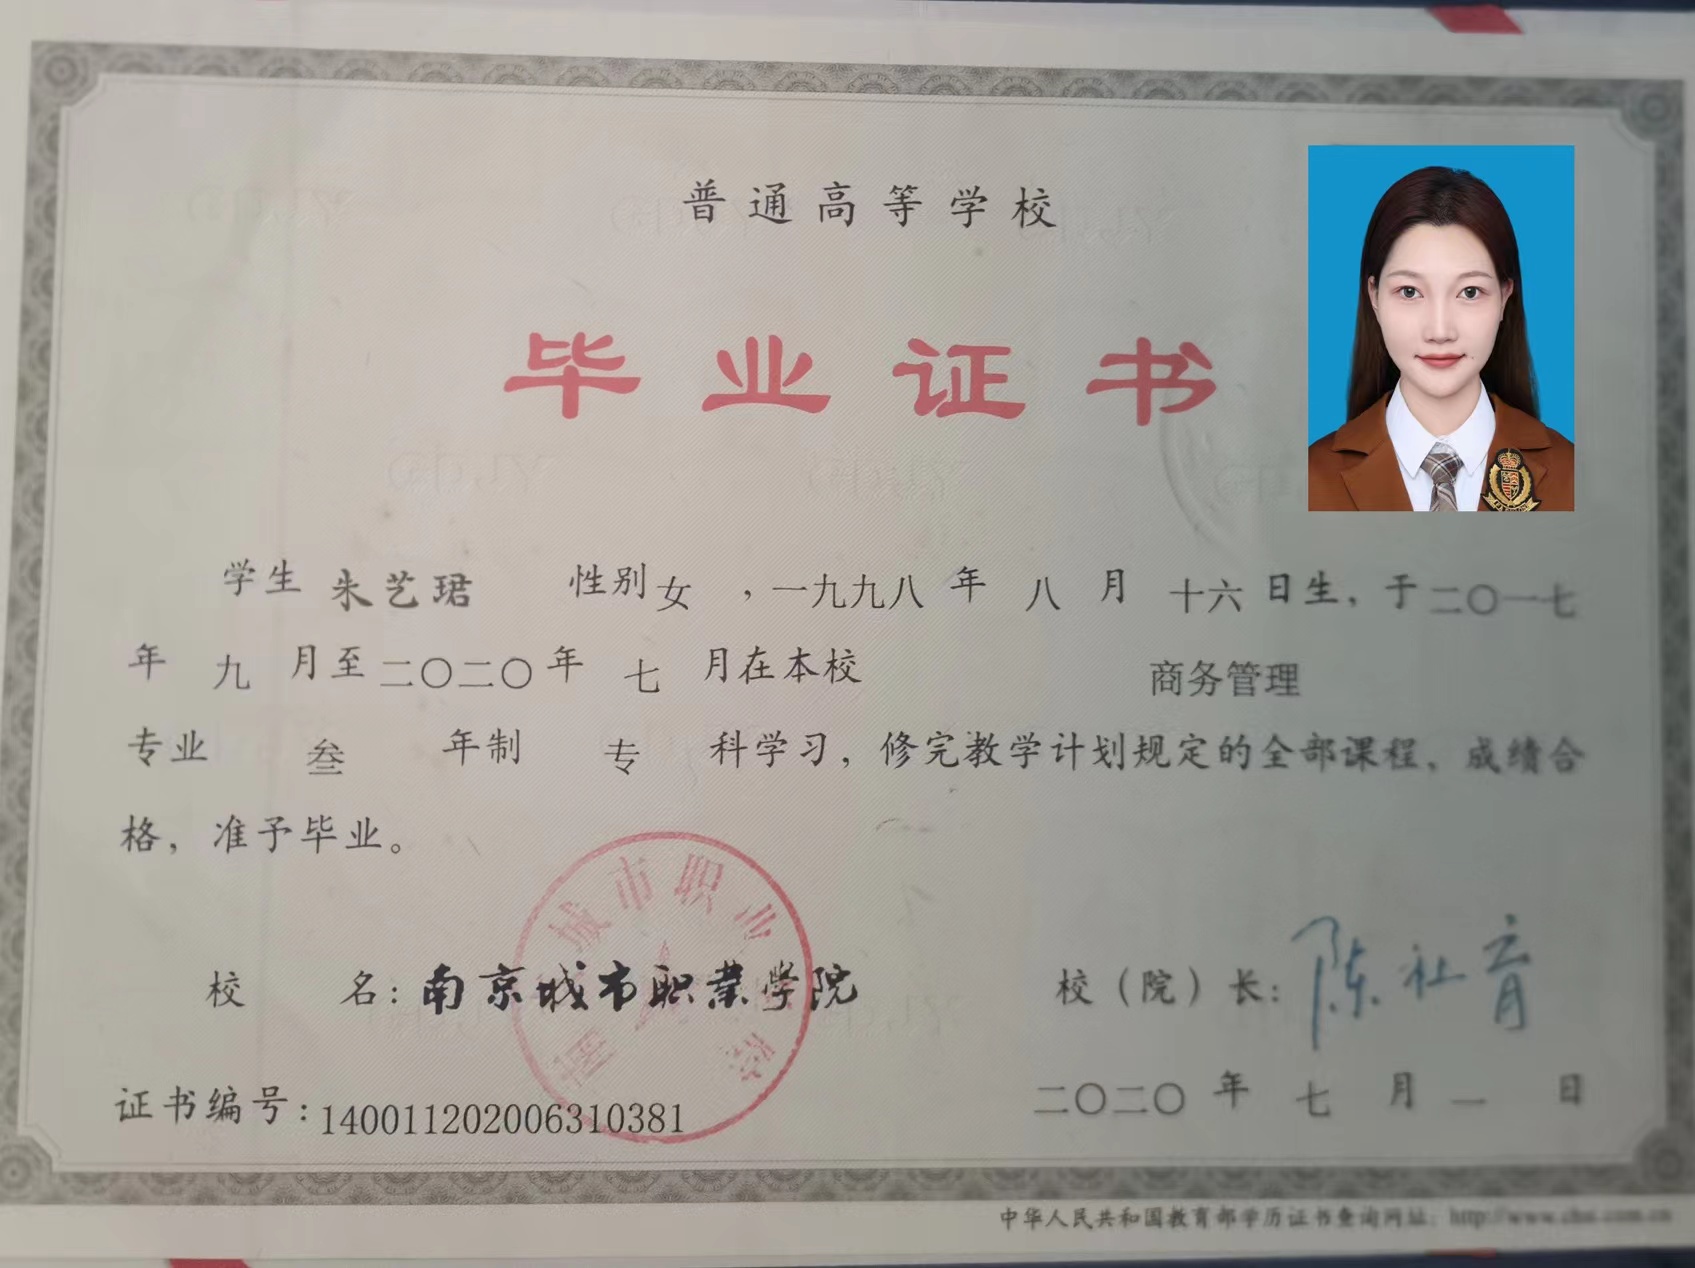 普通高等学校
毕业证书
学生 朱艺珺 性别 女 ，一九九八 年 八 月 十六 日生，于二〇一七
年 九 月至二〇二〇年 七 月在本校 商务管理
专业 叁 年制 专 科学习，修完教学计划规定的全部课程，成绩合
格，准予毕业。
城市职业
校 名：南京城市职业学院
校（院）长：陈社育
证书编号：140011202006310381
二〇二〇 年 七 月 一 日
中华人民共和国教育部学历证书查询网址：http://www.chsi.com.cn